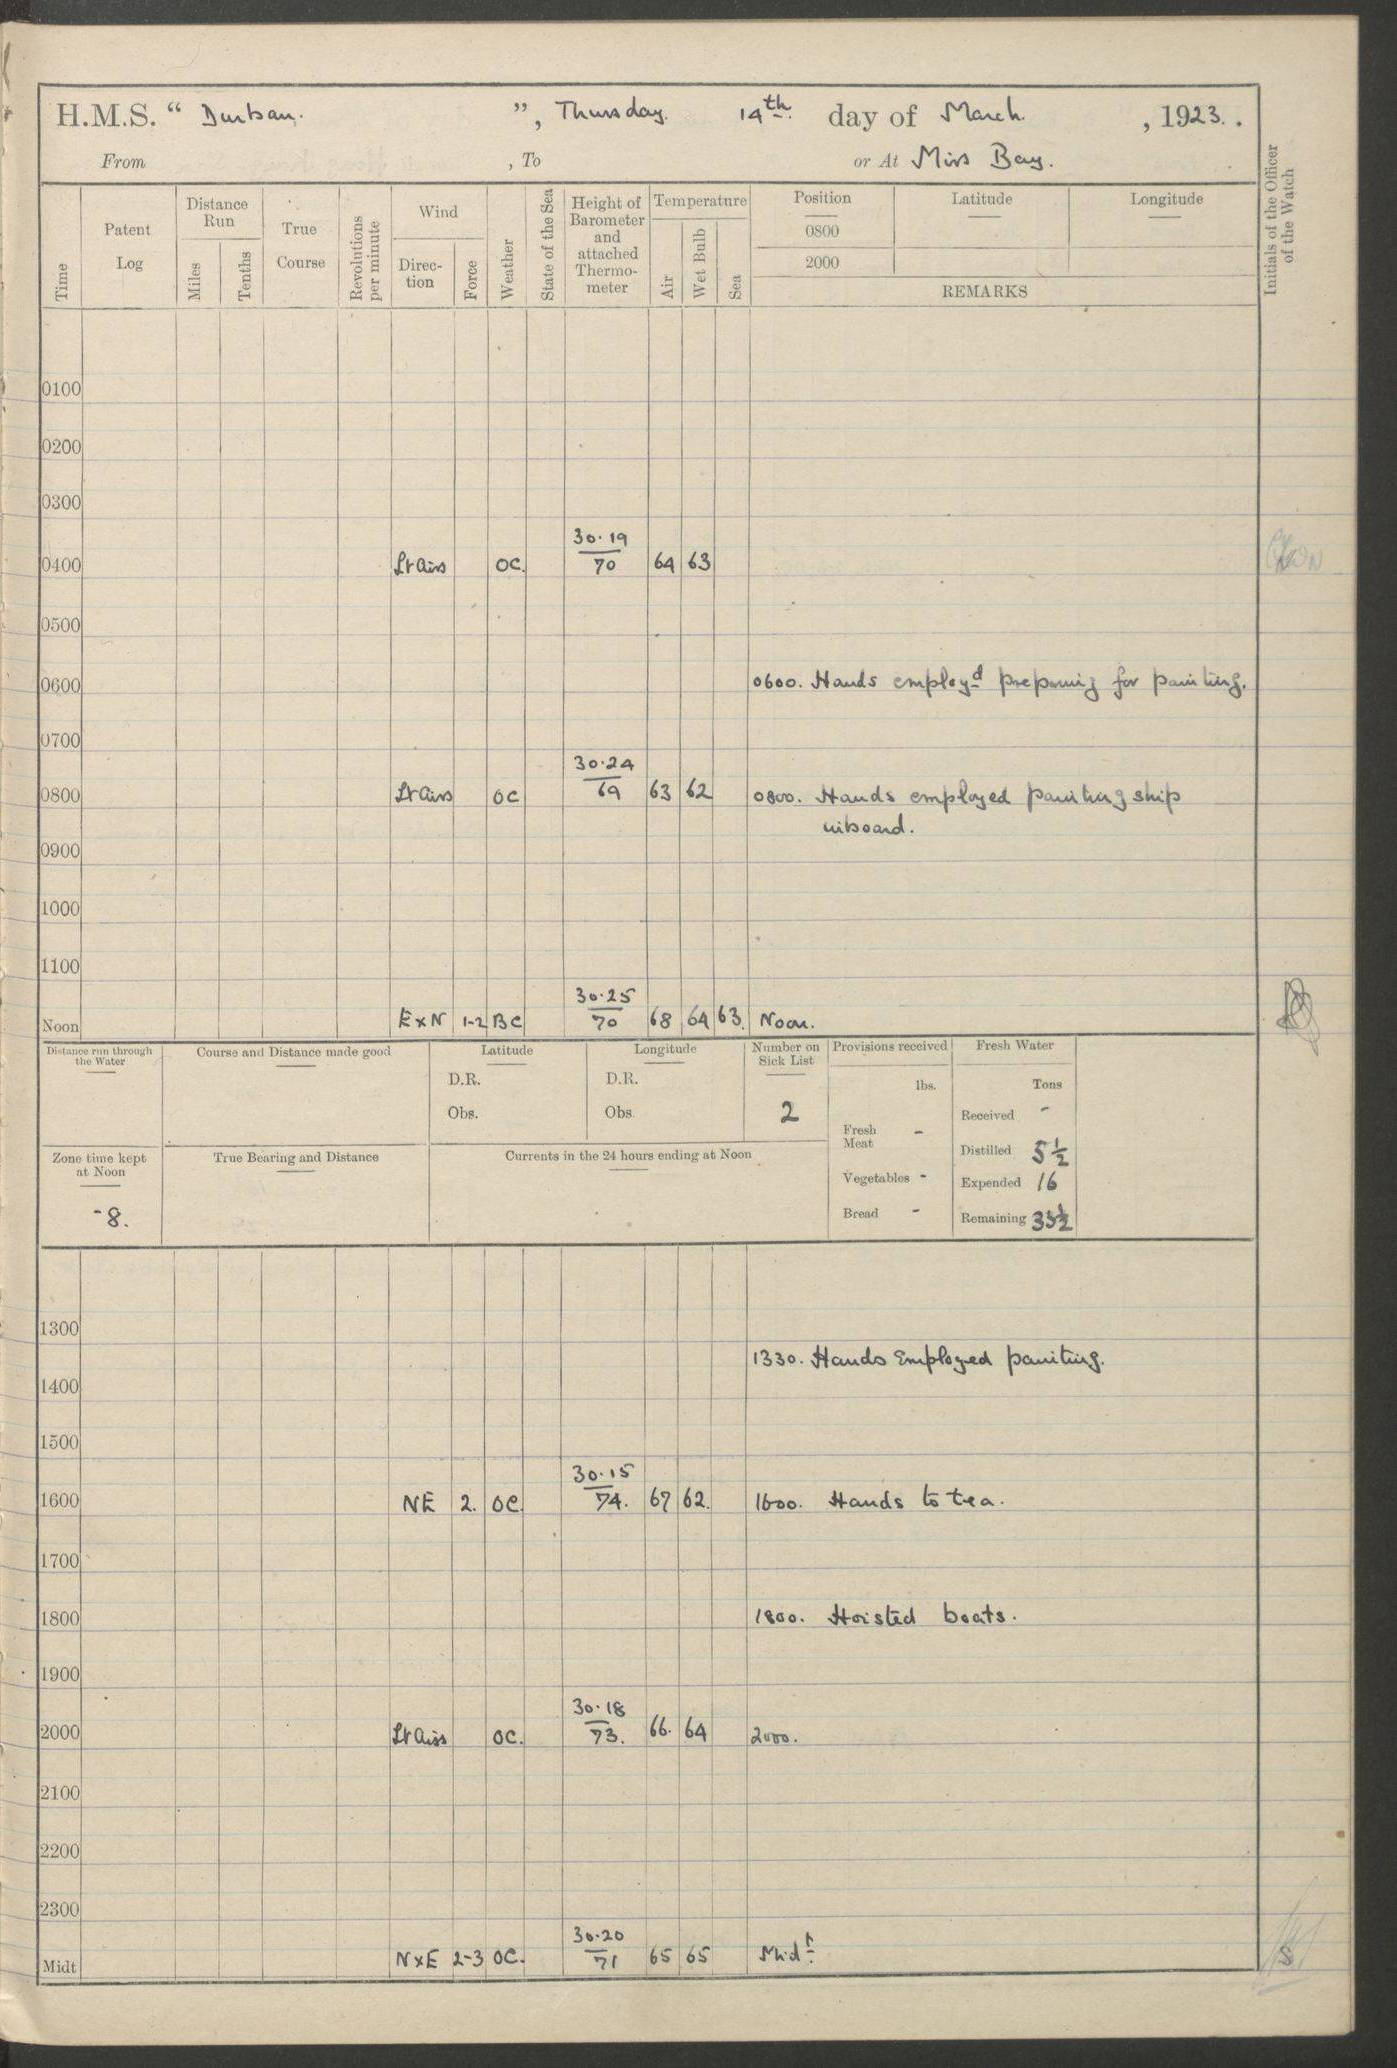 H.M.S. “ Durban. ”, Thursday. 14th. day of March. , 1923. .
From , To or At Mirs Bay.
Time Patent Log Distance Run Miles Tenths True Course Revolutions per minute Wind Direc-tion Force Weather State of the Sea Height of Barometer and attached Thermo-meter Temperature Air Wet Bulb Sea Position Latitude Longitude Initials of the Officer of the Watch
0800
2000
REMARKS
0100
0200
0300
30.19
0400 Lt airs OC. 70 64 63
0500
0600 0600. Hands employd preparing for painting.
0700
30.24
0800 Lt airs OC 69 63 62 0800. Hands employed painting ship
inboard.
0900
1000
1100
30.25
Noon E x N 1-2 BC 70 68 64 63. Noon.
Distance run through the Water Course and Distance made good Latitude Longitude Number on Sick List Provisions received Fresh Water
D.R. D.R. lbs. Tons
Obs. Obs 2 Received -
Fresh Meat -
Distilled 5½
Zone time kept at Noon True Bearing and Distance Currents in the 24 hours ending at Noon
Vegetables - Expended 16
-8. Bread - Remaining 33½
1300
1330. Hands Employed painting.
1400
1500
30.15
1600 NE 2. OC. 74. 67 62. 1600. Hands to tea.
1700
1800 1800. Hoisted boats.
1900
30.18
2000 Lt airs OC. 73. 66. 64 2000.
2100
2200
2300
30.20
Midt N x E 2-3 OC. 71 65 65 Midt.